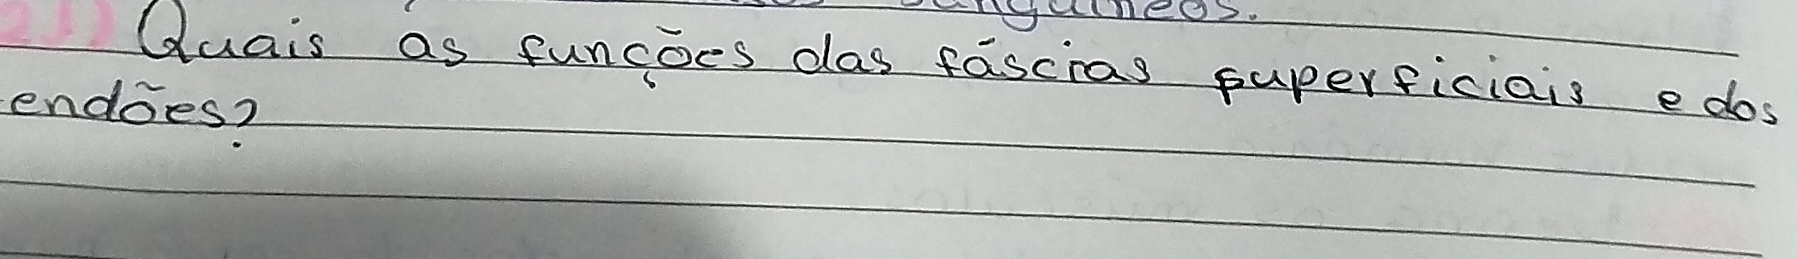 sanguíneos.
21) Quais as funções das fáscias superficiais e dos
tendões?